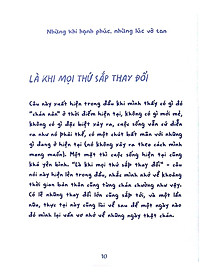 Những khi hạnh phúc, những lúc vỡ tan
LÀ KHI MỌI THỨ SẮP THAY ĐỔI
Câu này xuất hiện trong đầu khi mình thấy có gì đó
"chán nản" ở thời điểm hiện tại, không có gì mới mẻ,
không có gì đặc biệt xảy ra, cuộc sống vẫn cứ diễn
ra như nó phải thế, có một chút bất mãn với những
gì đang ở hiện tại (nó không xảy ra theo cách mình
mong muốn). Một mặt thì cuộc sống hiện tại cũng
khá yên bình. "là khi mọi thứ sắp thay đổi" - câu
nói này hiện lên trong đầu, nhắc mình nhớ về khoảng
thời gian bản thân cũng từng chán chường như vậy.
Có lẽ những thay đổi lớn cũng sắp tới, và một lần
nữa, thực tại này cũng lùi về sau để một ngày nào
đó mình lại vẩn vơ nhớ về những ngày thật chán.
10